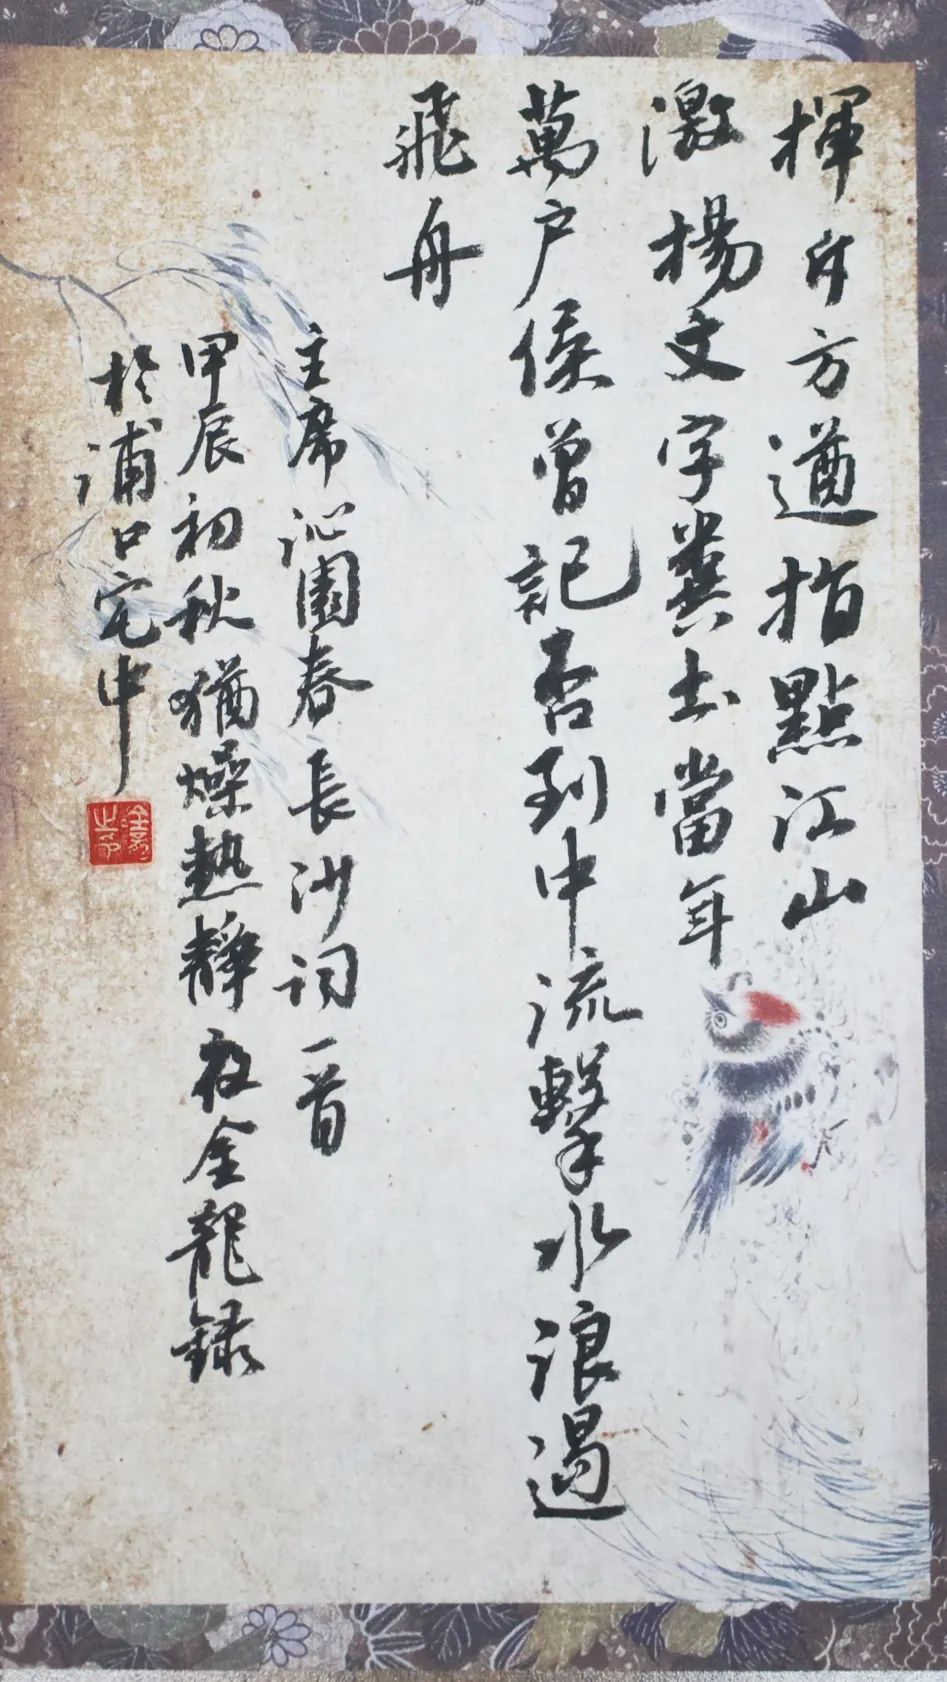 揮斥方遒指點江山
激揚文字糞土當年
萬户侯曾記否到中流擊水浪遏
飛舟
主席沁園春長沙詞一首
甲辰初秋猶燥熱靜夜金龍錄
於浦口宅中